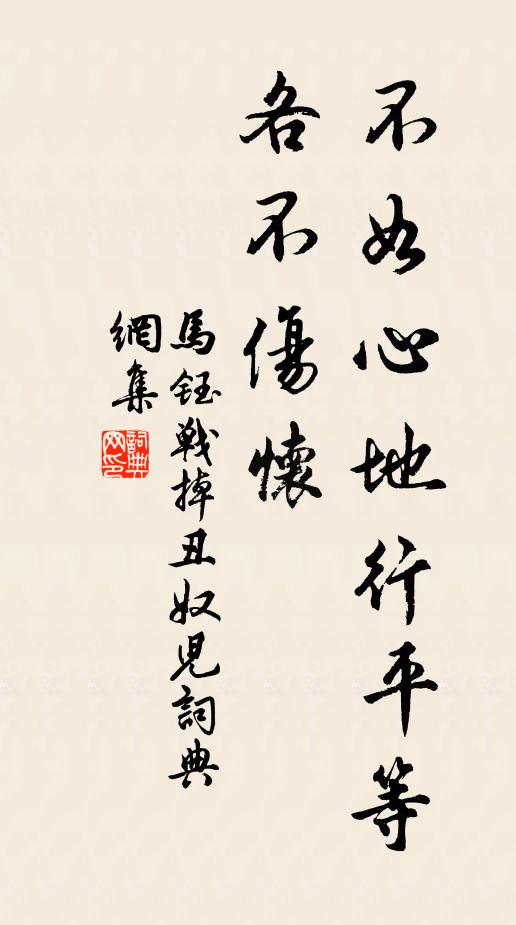 不如心地行平等
各不傷懷
馬鈺戰掉丑奴兒詞典
網集
詞典
网印